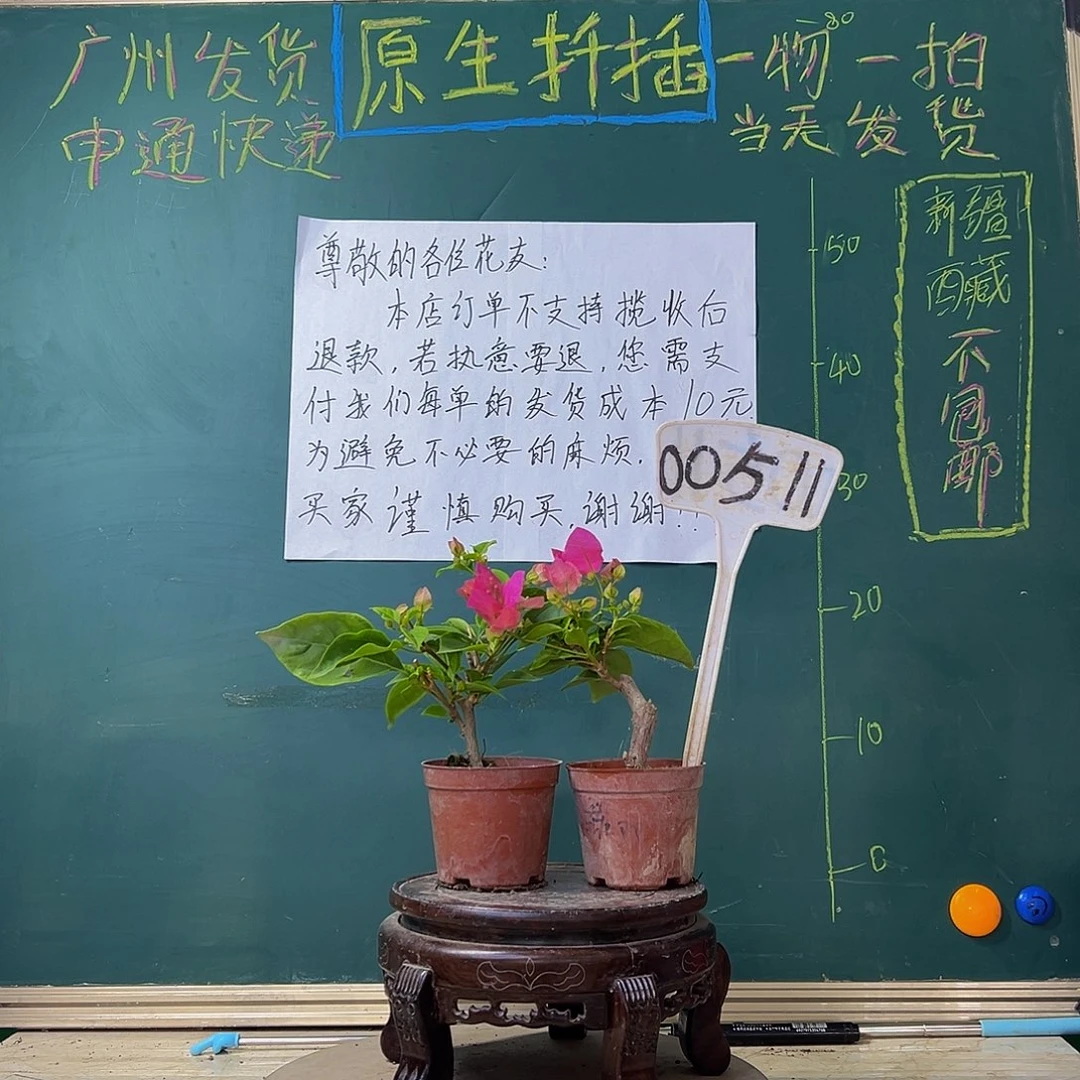 广州发货
原生扦插
一物一拍
申通快递
当天发货
新疆
西藏
不包邮
尊敬的各位花友:
本店订单不支持揽收后
退款,若执意要退,您需支
付我们每单的发货成本10元
为避免不必要的麻烦.
买家谨慎购买,谢谢!!
00511
80
50
40
30
20
10
0